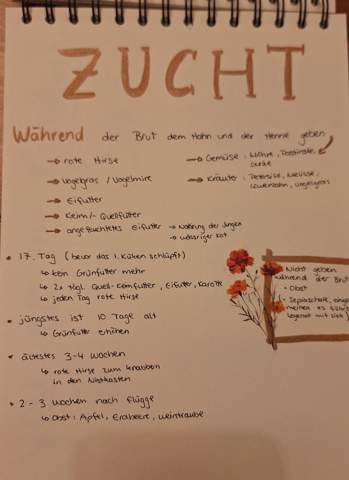 ZUCHT
Während der Brut dem Hahn und der Henne geben
→ rote Hirse
→ Vogelgras / Vogelmire
→ Eifutter
→ Keim/- Quellfutter
→ angefeuchtetes Eifutter → Nahrung der Jungen
→ wässriger Kot
→ Gemüse: Möhre, Pastinake,
Gurke
→ Kräuter: Petersilie, Melisse,
Löwenzahn, Vogelgras
• 17. Tag (bevor das 1. Küken schlüpft)
↳ kein Grünfutter mehr
↳ 2x tägl. Quell-Eifutter, Karotte
↳ jeden Tag rote Hirse
• jüngstes ist 10 Tage alt
↳ Grünfutter erhöhen
• ältestes 3-4 Wochen
↳ rote Hirse zum knabbern
in den Nistkasten
• 2 - 3 Wochen nach flügge
↳ Obst: Apfel, Erdbeere, Weintraube
Nicht geben
während der Brut
• Obst
• Sepiaschale,